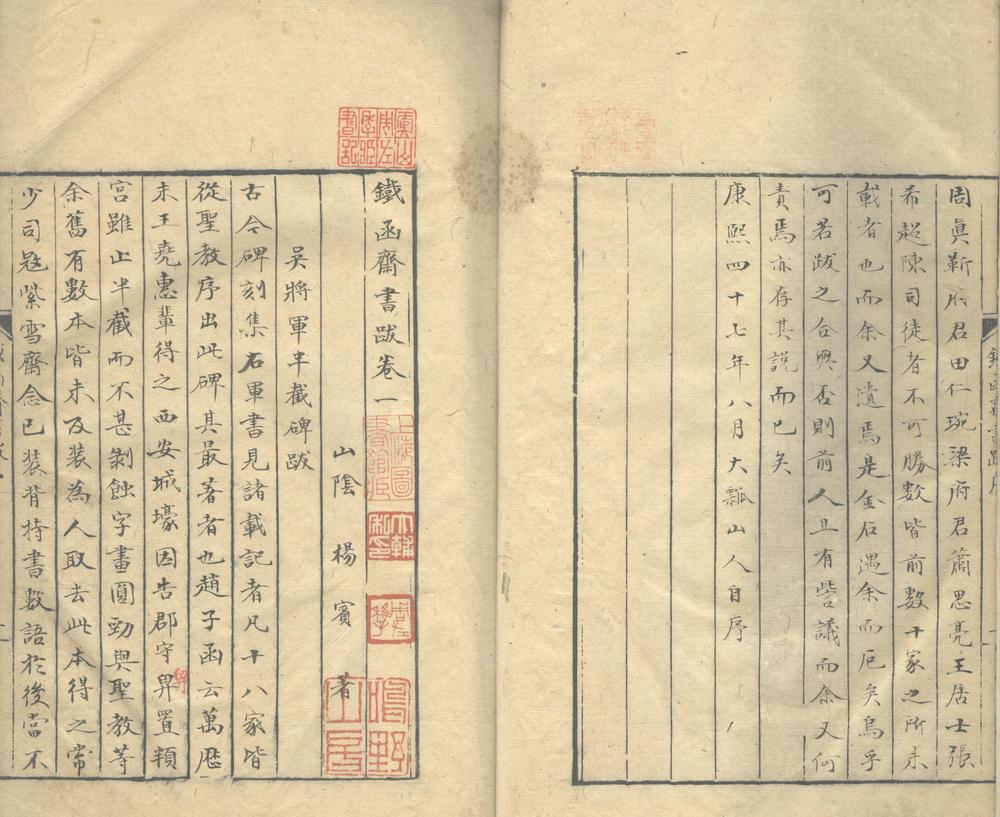 周真靳府君田仁琬梁府君蕭思亮王居士張
希超陳司徒者不可勝數皆前數十家之所未
載者也而余又遺焉是金石遇余而厄矣烏乎
可若跋之合與否則前人且有訾議而余又何
責焉亦存其說而已矣
康熙四十七年八月大瓢山人自序
鐵函齋書跋卷一
山陰楊賓著
吳將軍半截碑跋
古今碑刻集右軍書見諸載記者凡十八家皆
從聖教序出此碑其最著者也趙子函云萬歷
末王堯惠輩得之西安城壕因告郡守舁置頖
舁
宮雖止半截而不甚剝蝕字畫圓勁與聖教等
余舊有數本皆未及装為人取去此本得之常
少司寇紫雪齋念已装背持書數語於後當不
虞山周左季昭書記
上海圖書館藏
大輔私印
周左季
鴿野山房